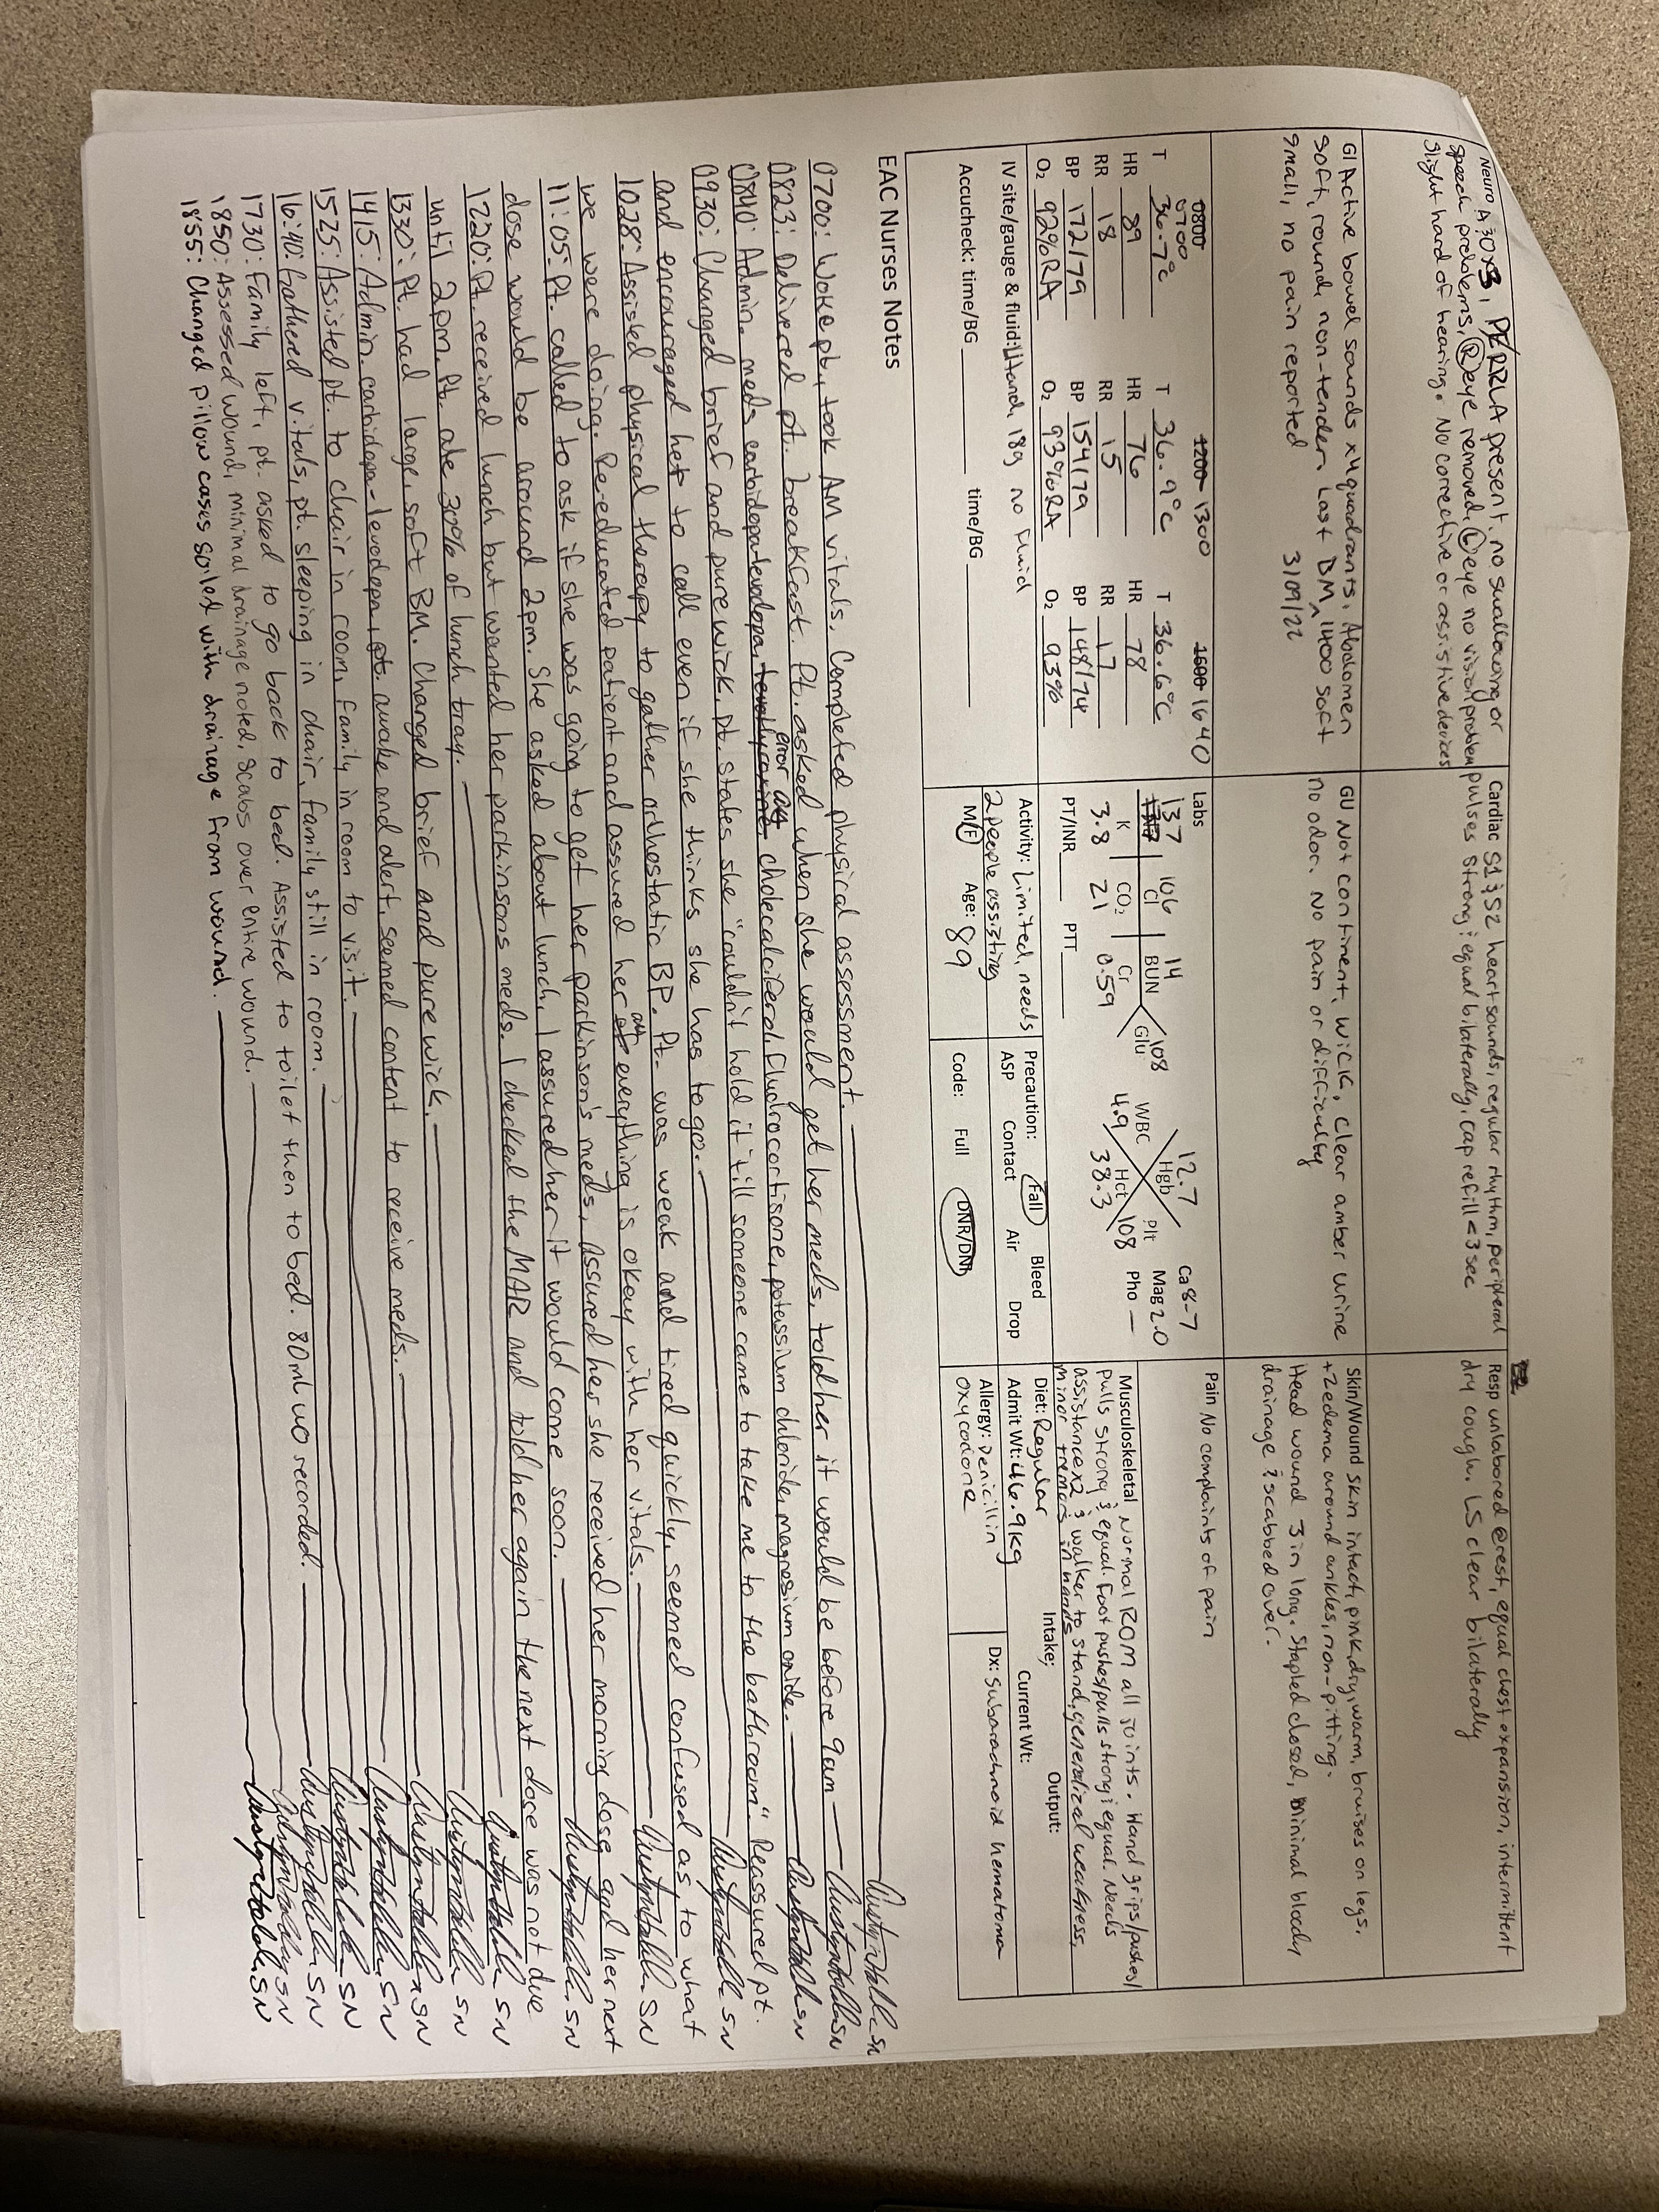 Neuro A+Ox3, PERRLA present, no swallowing or
speech problems, (R) eye removed, (L) eye no vision problem
slight hard of hearing. No corrective or assistive devices
Cardiac S1 & S2 heart sounds, regular rhythm, peripheral
pulses strong & equal bilaterally, cap refill <3 sec
Resp unlabored @rest, equal chest expansion, intermittent
dry cough. LS clear bilaterally
GI Active bowel sounds x4 quadrants. Abdomen
soft, round, non-tender. Last BM 1400 soft
3/09/22
small, no pain reported
GU Not continent, wick. Clear amber urine
no odor. No pain or difficulty
Skin/Wound Skin intact, pink, dry, warm, bruises on legs,
+2 edema around ankles, non-pitting.
Head wound 3 in long. Stapled closed, minimal bloody
drainage & scabbed over.
0800 0700
T 36.7°C
HR 89
RR 18
BP 172/79
O2 92%RA
1200 1300
T 36.9°C
HR 76
RR 15
BP 154/79
O2 93%RA
1600 1640
T 36.6°C
HR 78
RR 17
BP 148/74
O2 93%
Labs
137 106 14 108
K Cl BUN Glu
3.8 CO2 21 Cr 0.59
12.7
WBC Hgb Plt
4.9 Hct 108
38.3
Ca 8.7
Mag 2.0
Pho —
PT/INR PTT
Pain No complaints of pain
Musculoskeletal Normal ROM all joints. Hand grips/pushes/
pulls strong & equal. Foot pushes/pulls strong & equal. Needs
assistance x2 & walker to stand, generalized weakness,
minor tremors in hands
IV site/gauge & fluid: Hand, 18g no fluid
Accucheck: time/BG time/BG
Activity: Limited, needs
2 people assisting
M/F Age: 89
Precaution: Fall Bleed
ASP Contact Air Drop
Code: Full DNR/DNI
Diet: Regular Intake; Output:
Admit Wt: 46.9kg Current Wt:
Allergy: Penicillin
oxycodone
Dx: Subarachnoid hematoma
EAC Nurses Notes
0700: Woke pt., took AM vitals. Completed physical assessment. SN
0823: Delivered pt. breakfast. Pt. asked when she would get her meds, told her it would be before 9am SN
0840: Admin. meds carbidopa-levodopa, error cholecalciferol, fludrocortisone, potassium chloride, magnesium oxide. SN
0930: Changed brief and purewick. Pt. states she "couldn't hold it till someone came to take me to the bathroom". Reassured pt.
and encouraged her to call even if she thinks she has to go. SN
1028: Assisted physical therapy to gather orthostatic BP. Pt. was weak and tired quickly, seemed confused as to what
we were doing. Re-educated patient and assured her everything is okay with her vitals. SN
11:05: Pt. called to ask if she was going to get her parkinson's meds, assured her she received her morning dose and her next
dose would be around 2pm. She asked about lunch, I assured her it would come soon. SN
1220: Pt. received lunch but wanted her parkinsons meds. I checked the MAR and told her again the next dose was not due
until 2pm. Pt. ate 30% of lunch tray. SN
1330: Pt. had large, soft BM. Changed brief and purewick. SN
1415: Admin. carbidopa-levodopa, pt. awake and alert, seemed content to receive meds. SN
1525: Assisted pt. to chair in room, family in room to visit. SN
16:40: Gathered vitals, pt. sleeping in chair, family still in room. SN
1730: Family left, pt. asked to go back to bed. Assisted to toilet then to bed. 80ml UO recorded. SN
1850: Assessed wound, minimal drainage noted, scabs over entire wound. SN
1855: Changed pillow cases soiled with drainage from wound. SN